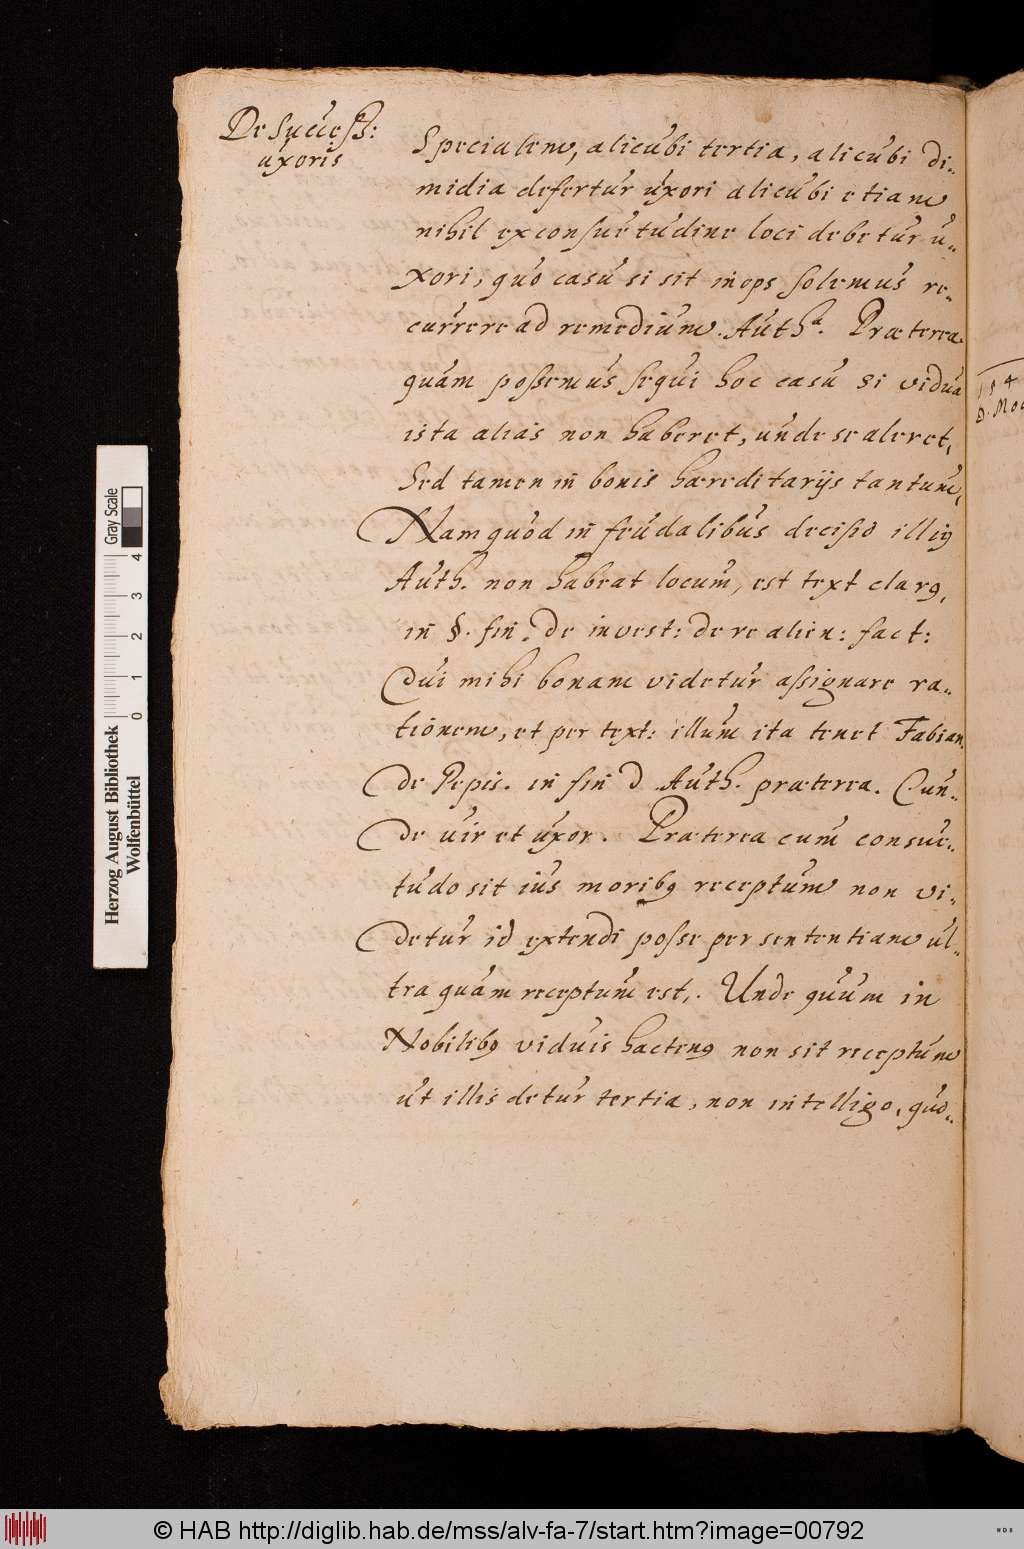 De Success:
uxoris
Specialem, alicubi tertia, alicubi di-
midia defertur uxori alicubi etiam
nihil ex consuetudine loci debetur u-
xori, quo casu si sit inops solemus re-
currere ad remedium. Auth. Præterea
quam possemus sequi hoc casu si vidua
ista alias non haberet, unde se aleret,
Sed tamen in bonis hæreditarijs tantum,
Nam quod in feudalibus decisio illig
Auth. non habeat locum, est text clarg,
in §. fin. De invest: de re alien: fact:
Qui mihi bonam videtur assignare ra-
tionem, et per text: illum ita tenet Fabian.
De Pepis. in fin D Auth. præterea. C un-
De vir et uxor. Præterea cum consue-
tudo sit ius moribg receptum non vi-
detur id extendi posse per sententiam ul-
tra quam receptum est,. Unde quum in
Nobilibg viduis hacteng non sit receptum
ut illis detur tertia, non intelligo, quo-
154
D. Mo
Herzog August Bibliothek
Wolfenbüttel
Gray Scale
0 1 2 3 4
© HAB http://diglib.hab.de/mss/alv-fa-7/start.htm?image=00792